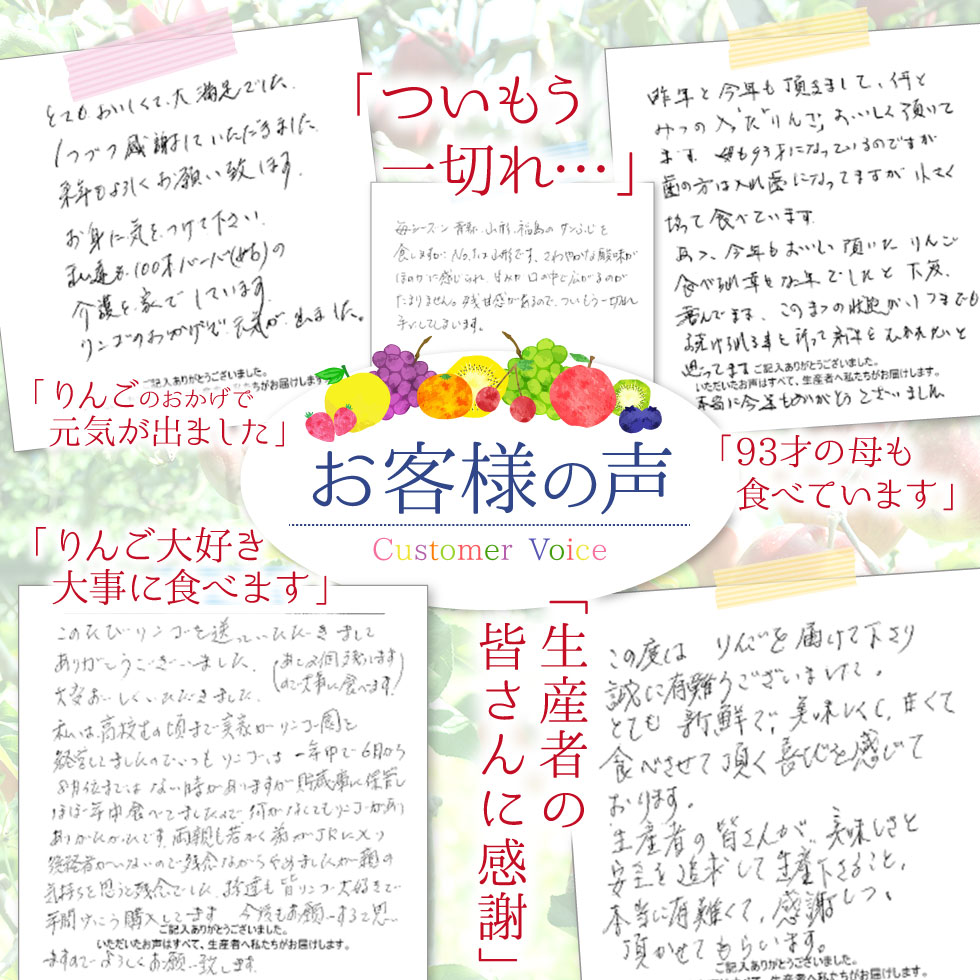 とてもおいしくて、大満足でした。
1つづつ感謝していただきました。
来年もよろしくお願い致します。
お身に気をつけて下さい。
100才バーバ(める)の
介護を家でしています。
リンゴのおかげで元気が出ました。
ご記入ありがとうございました。
ちがお届けします。
「りんごのおかげで
元気が出ました」
「ついもう
一切れ…」
毎シーズン 青森、山形、福島のサンふじを
食しますが No.1は山形です。さわやかな酸味が
ほのかに感じられ、甘みが口の中で広がるのが
たまりません。残甘感があるので、ついもう一切れ
手にしてしまいます。
昨年と今年も頂きまして、何と
みつの入ったりんご、おいしく頂いて
ます。母も93才になっているのですが
歯の方は入れ歯になってますが小さく
切って食べています。
今年もおいしい頂いたりんご
食べられ幸せな年でしたと大変
喜んでます。
思ってます
ご記入ありがとうございました。
いただいたお声はすべて、生産者へ私たちがお届けします。
本当に今年もありがとうございました
「93才の母も
食べています」
お客様の声
Customer Voice
「りんご大好き
大事に食べます」
このたびリンゴを送っていただきまして
ありがとうございました。
(あと2個で終ります
ので大事に食べます)
大変おいしくいただきました。
私は高校生の頃まで実家がリンゴ園を
経営してましたのでいつもリンゴは一年中で6月から
8月位まではない時がありますが貯蔵庫に保管し
ほぼ年中食べてましたので何がなくてもリンゴがあり
ありがたかたです。両親も若かく弟がJRに入り
後継者がいないので残念ながらやめましたが親の
気持ちを思うと残念でした。孫達も皆リンゴ大好きで
年間けっこう購入してます。今後もお願いすると思い
ご記入ありがとうございました。
いただいたお声はすべて、生産者へ私たちがお届けします。
ますのでよろしくお願い致します。
「生産者の
皆さんに感謝」
この度は りんごを届けて下さり
誠に有難うございました。
とても新鮮で、美味しくて、甘くて
食べさせて頂く喜びを感じて
おります。
生産者の皆さんが、美味しさと
安全を追求して生産下さること、
本当に有難くて、感謝しつつ
頂かせてもらいます。
ご記入ありがとうございました。